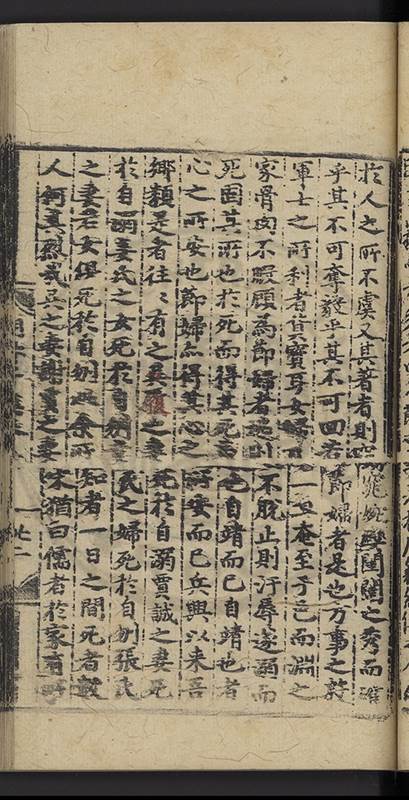 於人之所不虞又其著者則婉閨閫之秀而確
乎其不可奪毅乎其不可回若節婦者是也方事之殷
軍士之所利者貨寶耳女婦一旦奄至于邑而淵之
家骨肉不暇顧焉節婦者不脫止則汙辱遂溺而
死固其所也於死而得其死焉自靖而已自靖也者
心之所安也節婦亦得其心之所安而已兵興以来吾
鄉類是者往〻有之吳履之妻死於自溺賈誠之妻死
於自溺姜氏之女死於自刎民之婦死於自刎張氏
之妻若女俱死於自刎此余所知者一日之間死者數
人何其烈哉之妻謝之妻宋猶曰儒者於家有所